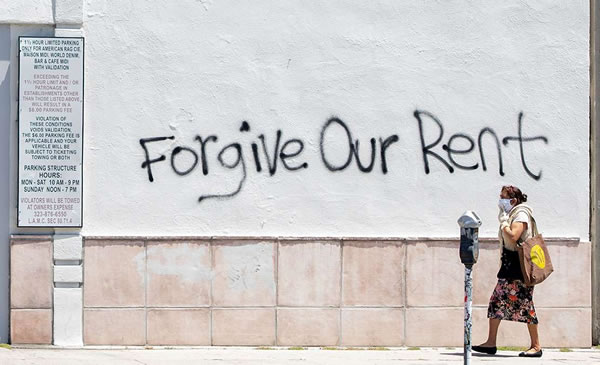 * 1½ HOUR LIMITED PARKING
ONLY FOR AMERICAN RAG CIE,
MAISON MIDI, WORLD DENIM,
BAR & CAFE MIDI
WITH VALIDATION
EXCEEDING THE
1½ HOUR LIMIT AND / OR
PATRONAGE IN
ESTABLISHMENTS OTHER
THAN THOSE LISTED ABOVE,
WILL RESULT IN A
$6.00 PARKING FEE
VIOLATION OF
THESE CONDITIONS
VOIDS VALIDATION.
THE $6.00 PARKING FEE IS
APPLICABLE AND YOUR
VEHICLE WILL BE
SUBJECT TO TICKETING
TOWING OR BOTH
PARKING STRUCTURE
HOURS:
MON - SAT 10 AM - 9 PM
SUNDAY NOON - 7 PM
VIOLATORS WILL BE TOWED
AT OWNERS EXPENSE
323-876-6550
L.A.M.C. SEC 80.71.4
Forgive Our Rent